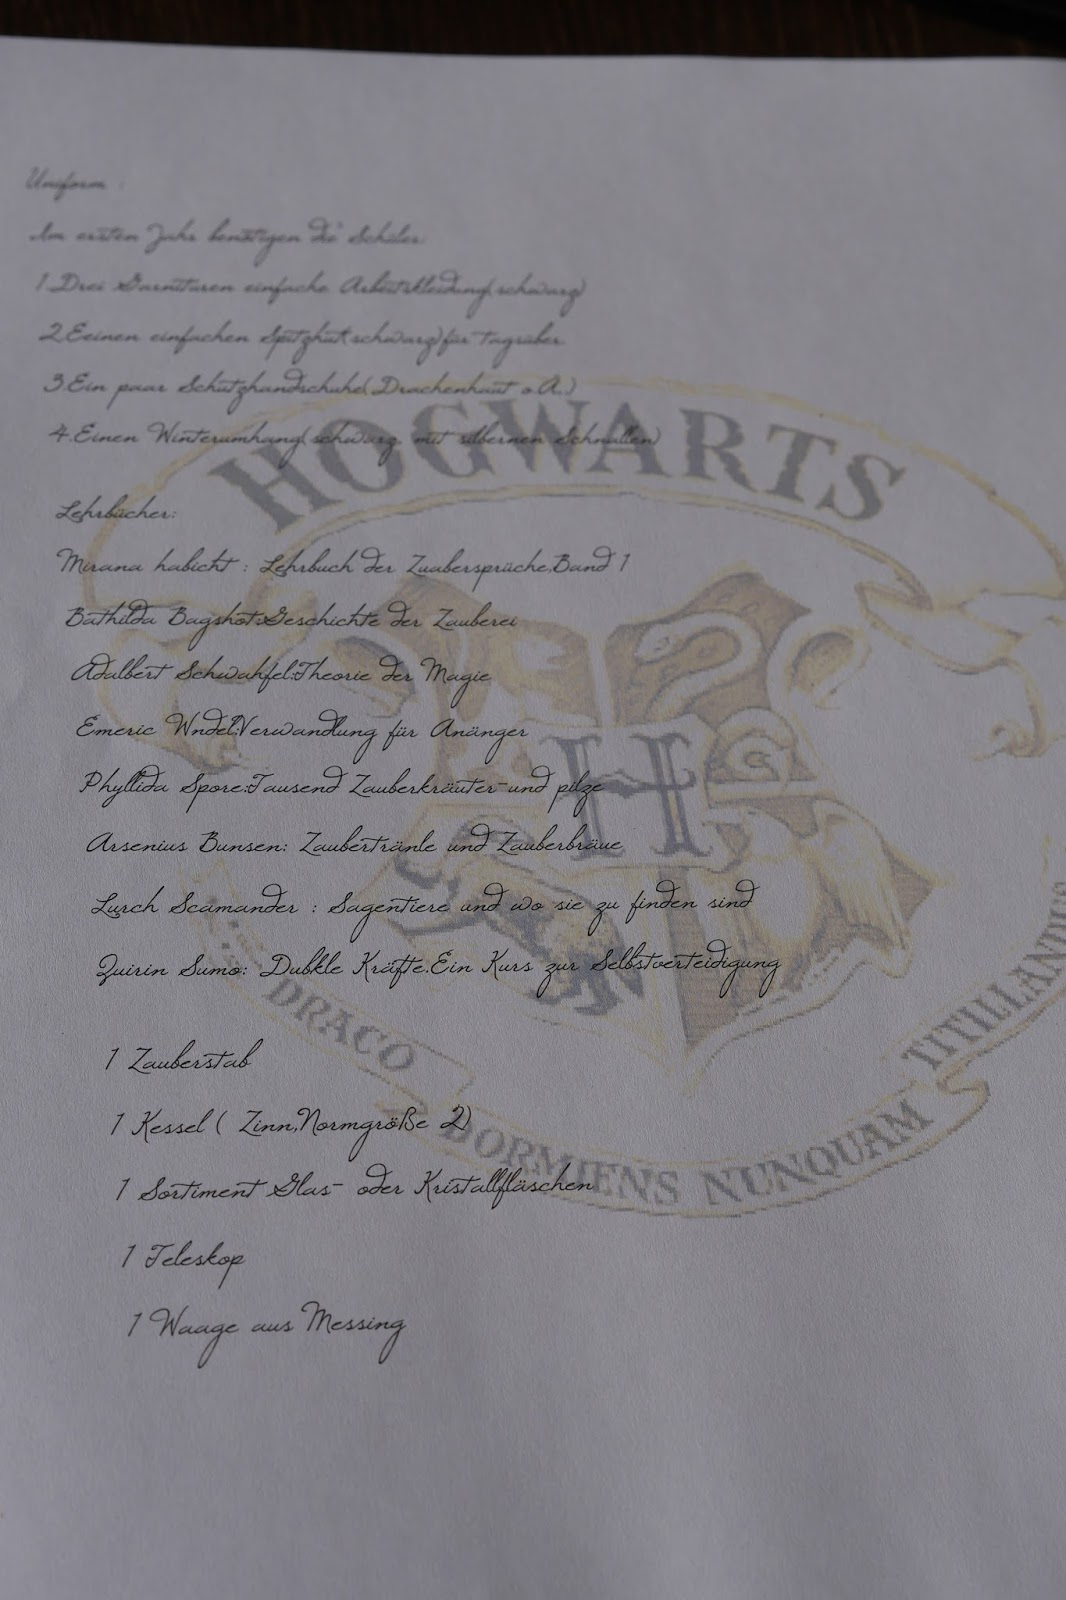 Uniform :
Im ersten Jahr benötigen die Schüler:
1.Drei Garnituren einfache Arbeitskleidung(schwarz)
2.Eeinen einfachen Spitzhut(schwarz)für Tagsüber
3.Ein paar Schutzhandschuhe(Drachenhaut o.A.)
4.Einen Winterumhang(schwarz, mit silbernen Schnallen)
HOGWARTS
Lehrbücher:
Mirana habicht : Lehrbuch der Zuabersprüche,Band 1
Bathilda Bagshot:Geschichte der Zauberei
Adalbert Schwahfel:Theorie der Magie
Emeric Wndel:Verwandlung für Anänger
Phyllida Spore:Tausend Zauberkräuter-und pilze
H
Arsenius Bunsen: Zaubertränle und Zauberbräue
Lurch Scamander : Sagentiere und wo sie zu finden sind
Quirin Sumo: Dubkle Kräfte.Ein Kurs zur Selbstverteidigung
DRACO DORMIENS NUNQUAM TITILLANDUS
1 Zauberstab
1 Kessel ( Zinn,Normgröße 2)
1 Sortiment Glas- oder Kristallfläschen
1 Teleskop
1 Waage aus Messing